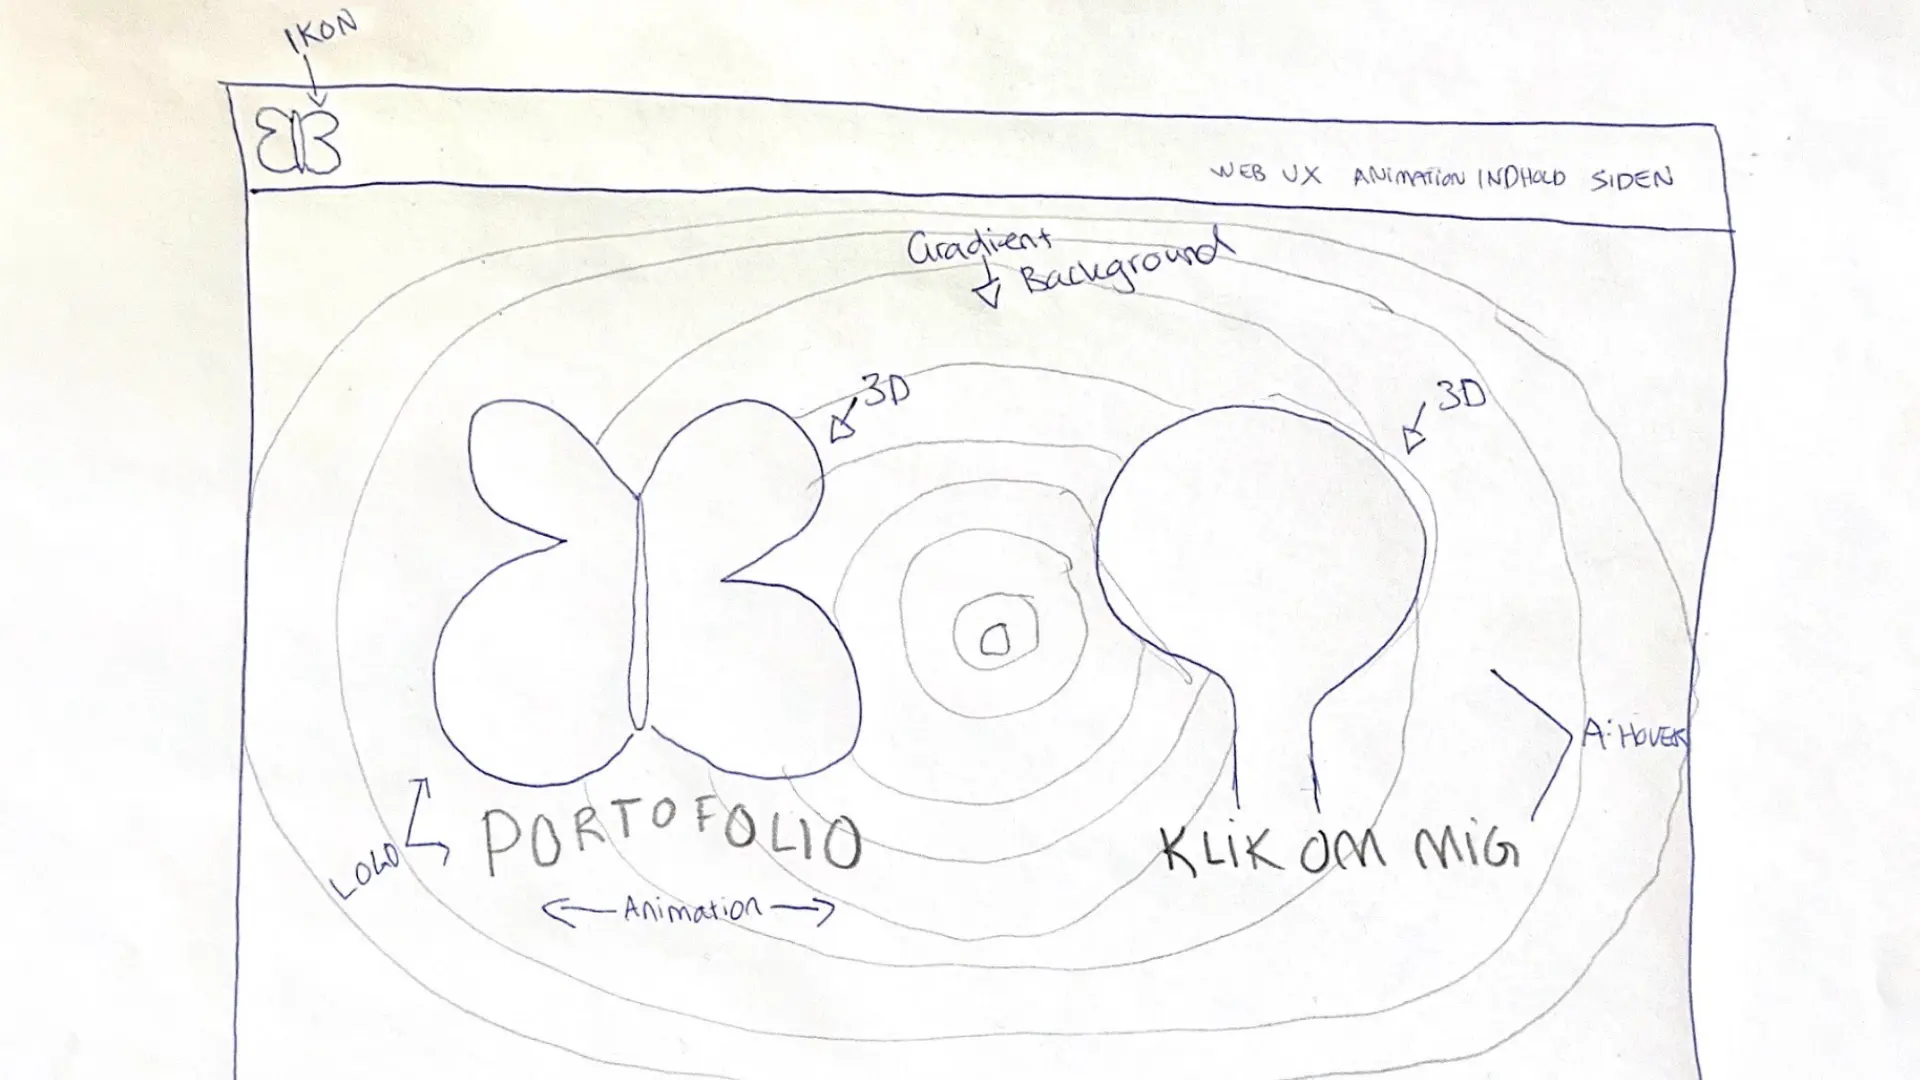 IKON
WEB UX ANIMATION INDHOLD SIDEN
Gradient
Background
3D
3D
A:HOVER
LOGO
PORTOFOLIO
KLIK OM MIG
Animation